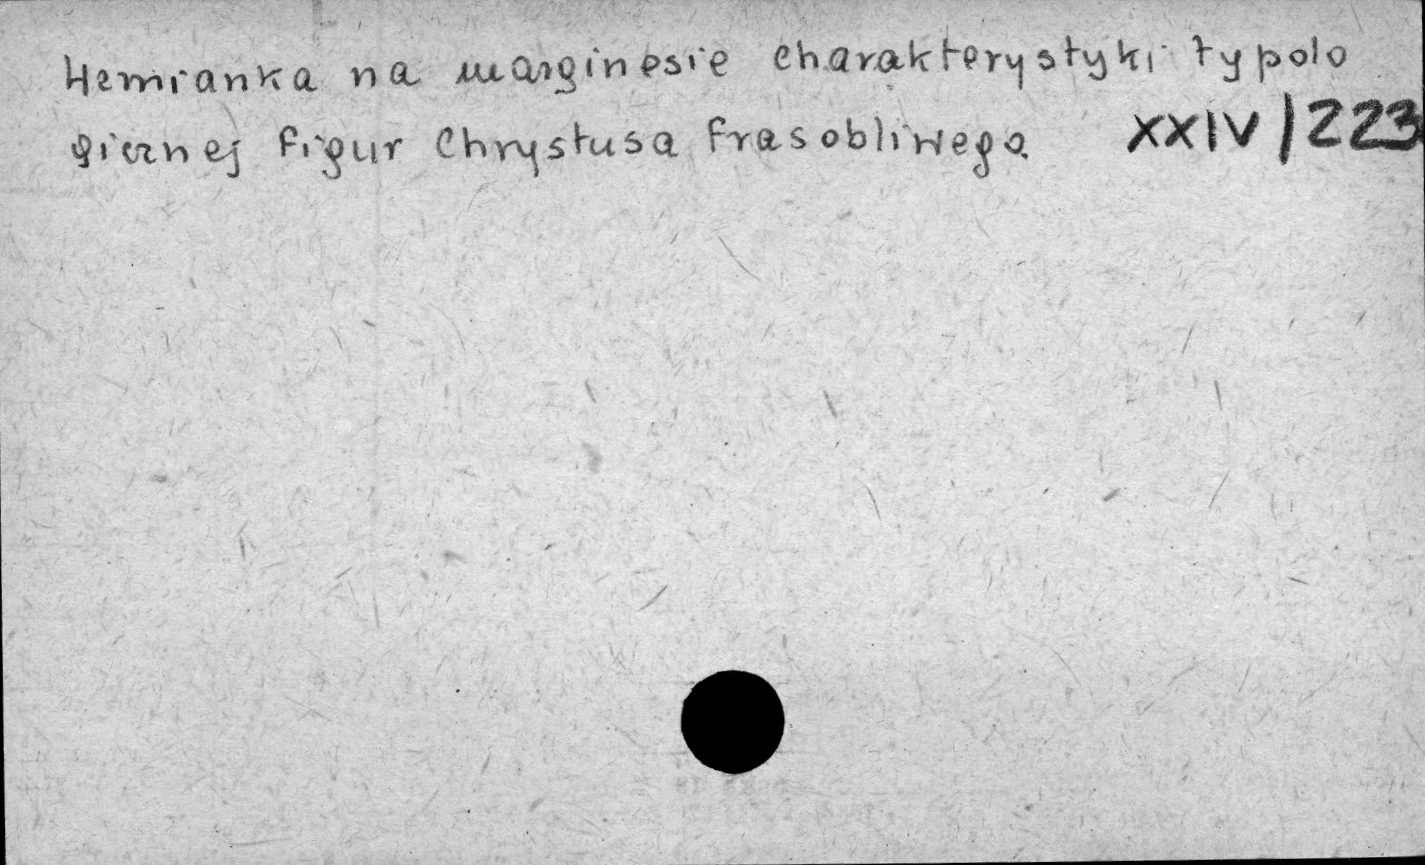 Wzmianka na marginesie charakterystyki typolo
gicznej figur Chrystusa Frasobliwego. XXIV/223